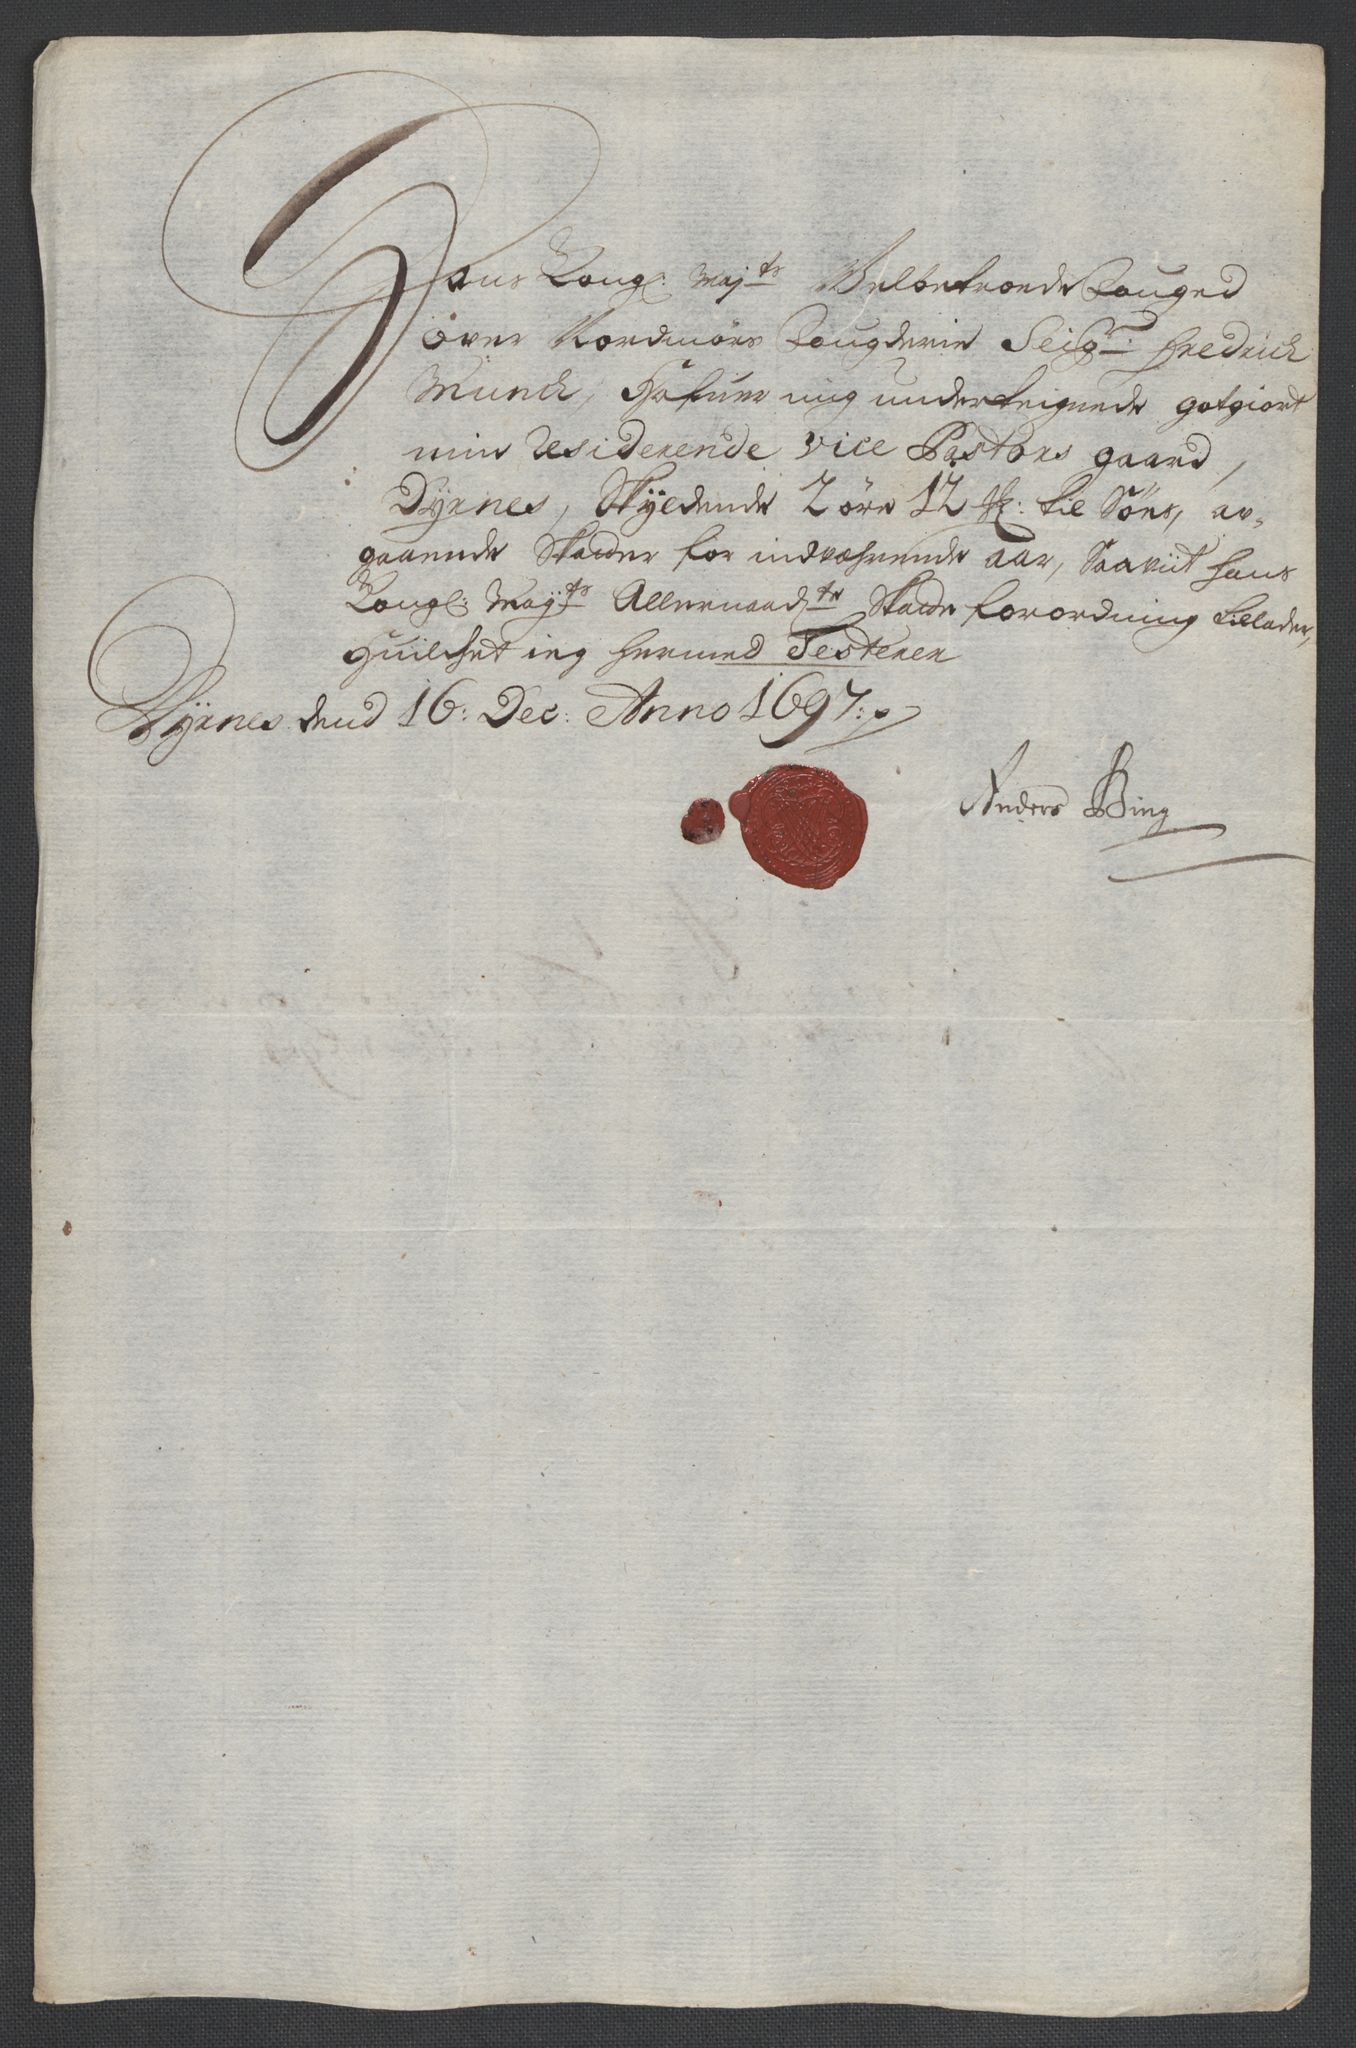 Hans Kongl: Maj:ts Velbetroede Fouged
över Nordmörs Fougderie Seig:r Fredrich
Munch, Hafuer mig underteignede gotgiort
min Residerende Vice Pastors gaard,
Dÿrnes, Skÿldende 2 öre 12 ℔: til Söns, av-
gaaende Skatter for indværende aar, Saaviit hans
Kongl: May:ts Allernaad:te Skatte forordning tillader,
Huilchet ieg hermed Testerer
Dÿrnes dend 16: Dec: Anno 1697:
Anders Bing